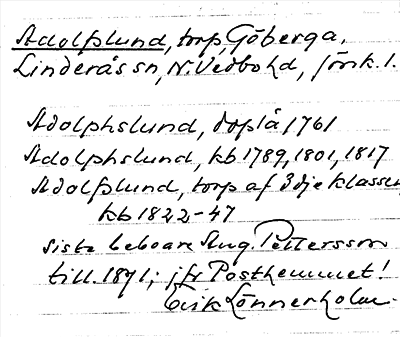 Adolfslund, torp, Göberga,
Linderås sn, N. Vedbo hd, Jönk. l.
Adolphslund, doplä 1761
Adolphslund, kb 1789, 1801, 1817
Adolfslund, torp af 3dje klassen
kb 1822-47
sista beboare Aug. Pettersson
till 1891; jfr Posthemmet!
Erik Lönnerholm.